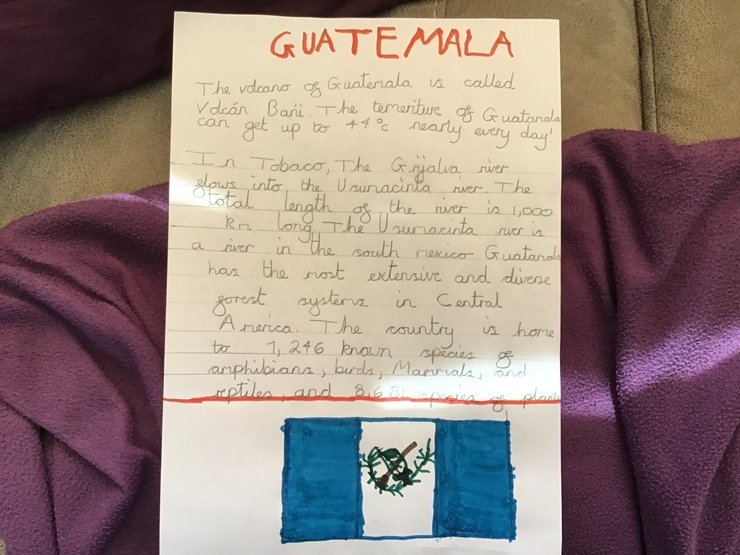 GUATEMALA
The volcano of Guatemala is called
Volcán Barú. The temeriture of Guatamala
can get up to 44°c nearly every day!
In Tobaco, The Grijalva river
flows into the Usumacinta river. The
total length of the river is 1,000
km long. The Usumacinta river is
a river in the south mexico. Guatamala
has the most extensive and diverse
forest systems in Central
America. The country is home
to 1,246 known species of
amphibians, birds, Mammals, and
reptiles, and 8,681 species of plants